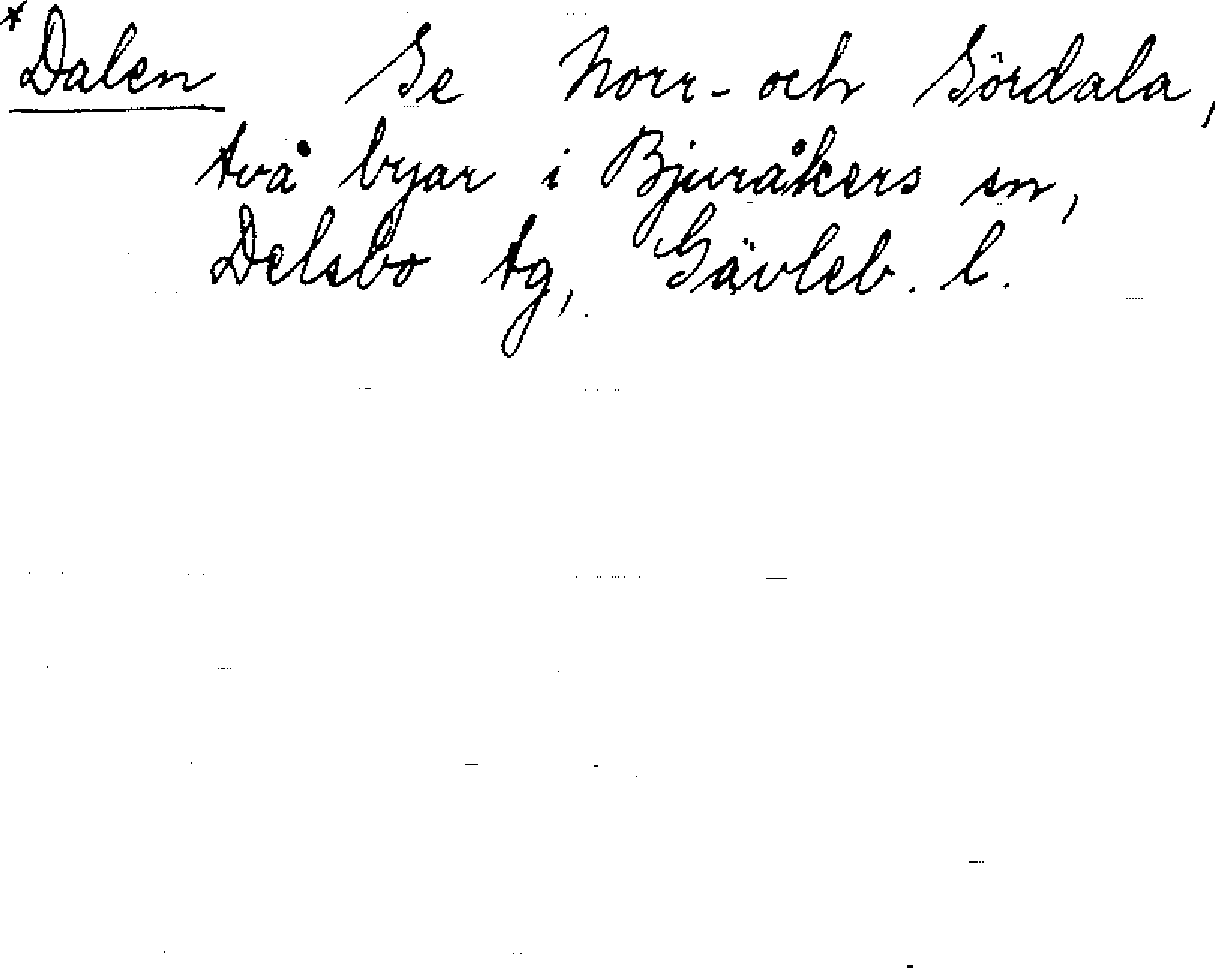 *Dalen Se Norr- och Sördala,
två byar i Bjuråkers sn,
Delsbo tg, Gävleb. l.